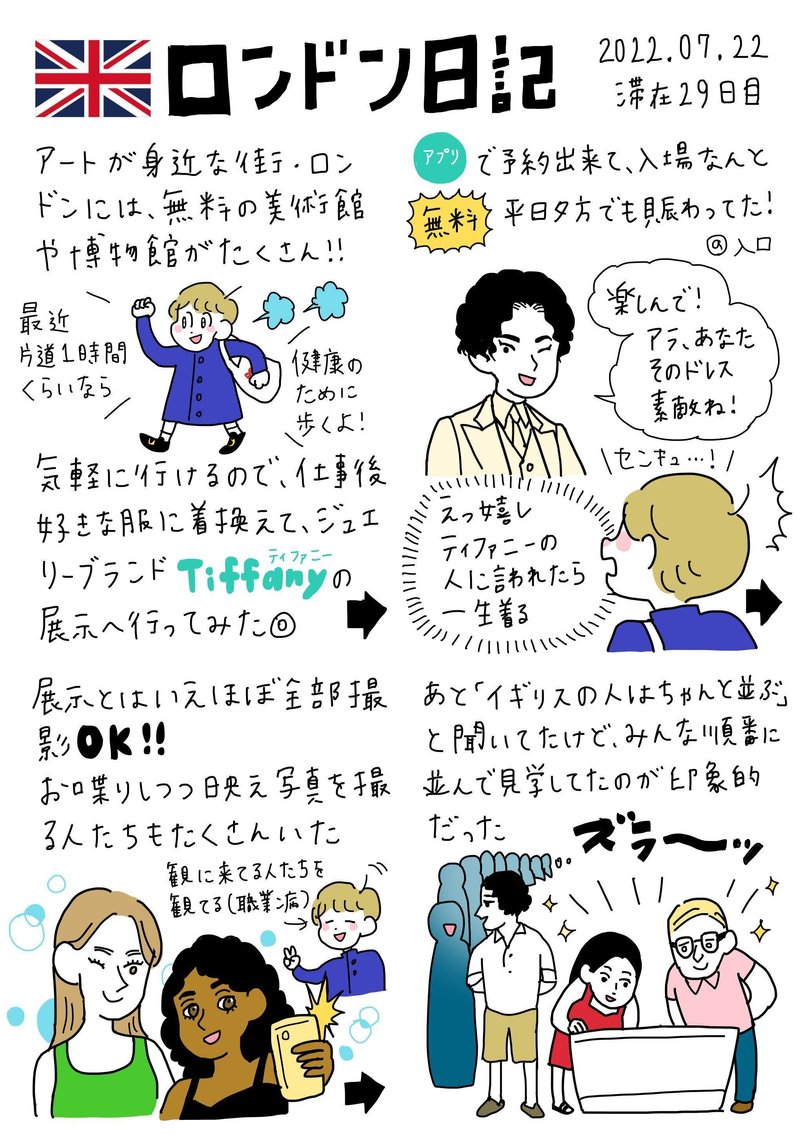 ロンドン日記
2022.07.22
滞在29日目
アートが身近な街・ロン
ドンには、無料の美術館
や博物館がたくさん!!
最近
片道1時間
くらいなら
健康の
ために
歩くよ!
気軽に行けるので、仕事後
好きな服に着換えて、ジュエ
ティファニー
リーブランドTiffanyの
展示へ行ってみた◎
アプリで予約出来て、入場なんと
無料 平日夕方でも賑わってた!
@入口
楽しんで!
アラ、あなた
そのドレス
素敵ね!
\センキュ…!/
えっ嬉し
ティファニーの
人に言われたら
一生着る
展示とはいえほぼ全部撮
影OK!!
お喋りしつつ映え写真を撮
る人たちもたくさんいた
観に来てる人たちを
観てる(職業病)→
あと「イギリスの人はちゃんと並ぶ」
と聞いてたけど、みんな順番に
並んで見学してたのが印象的
だった
ズラ〜ッ